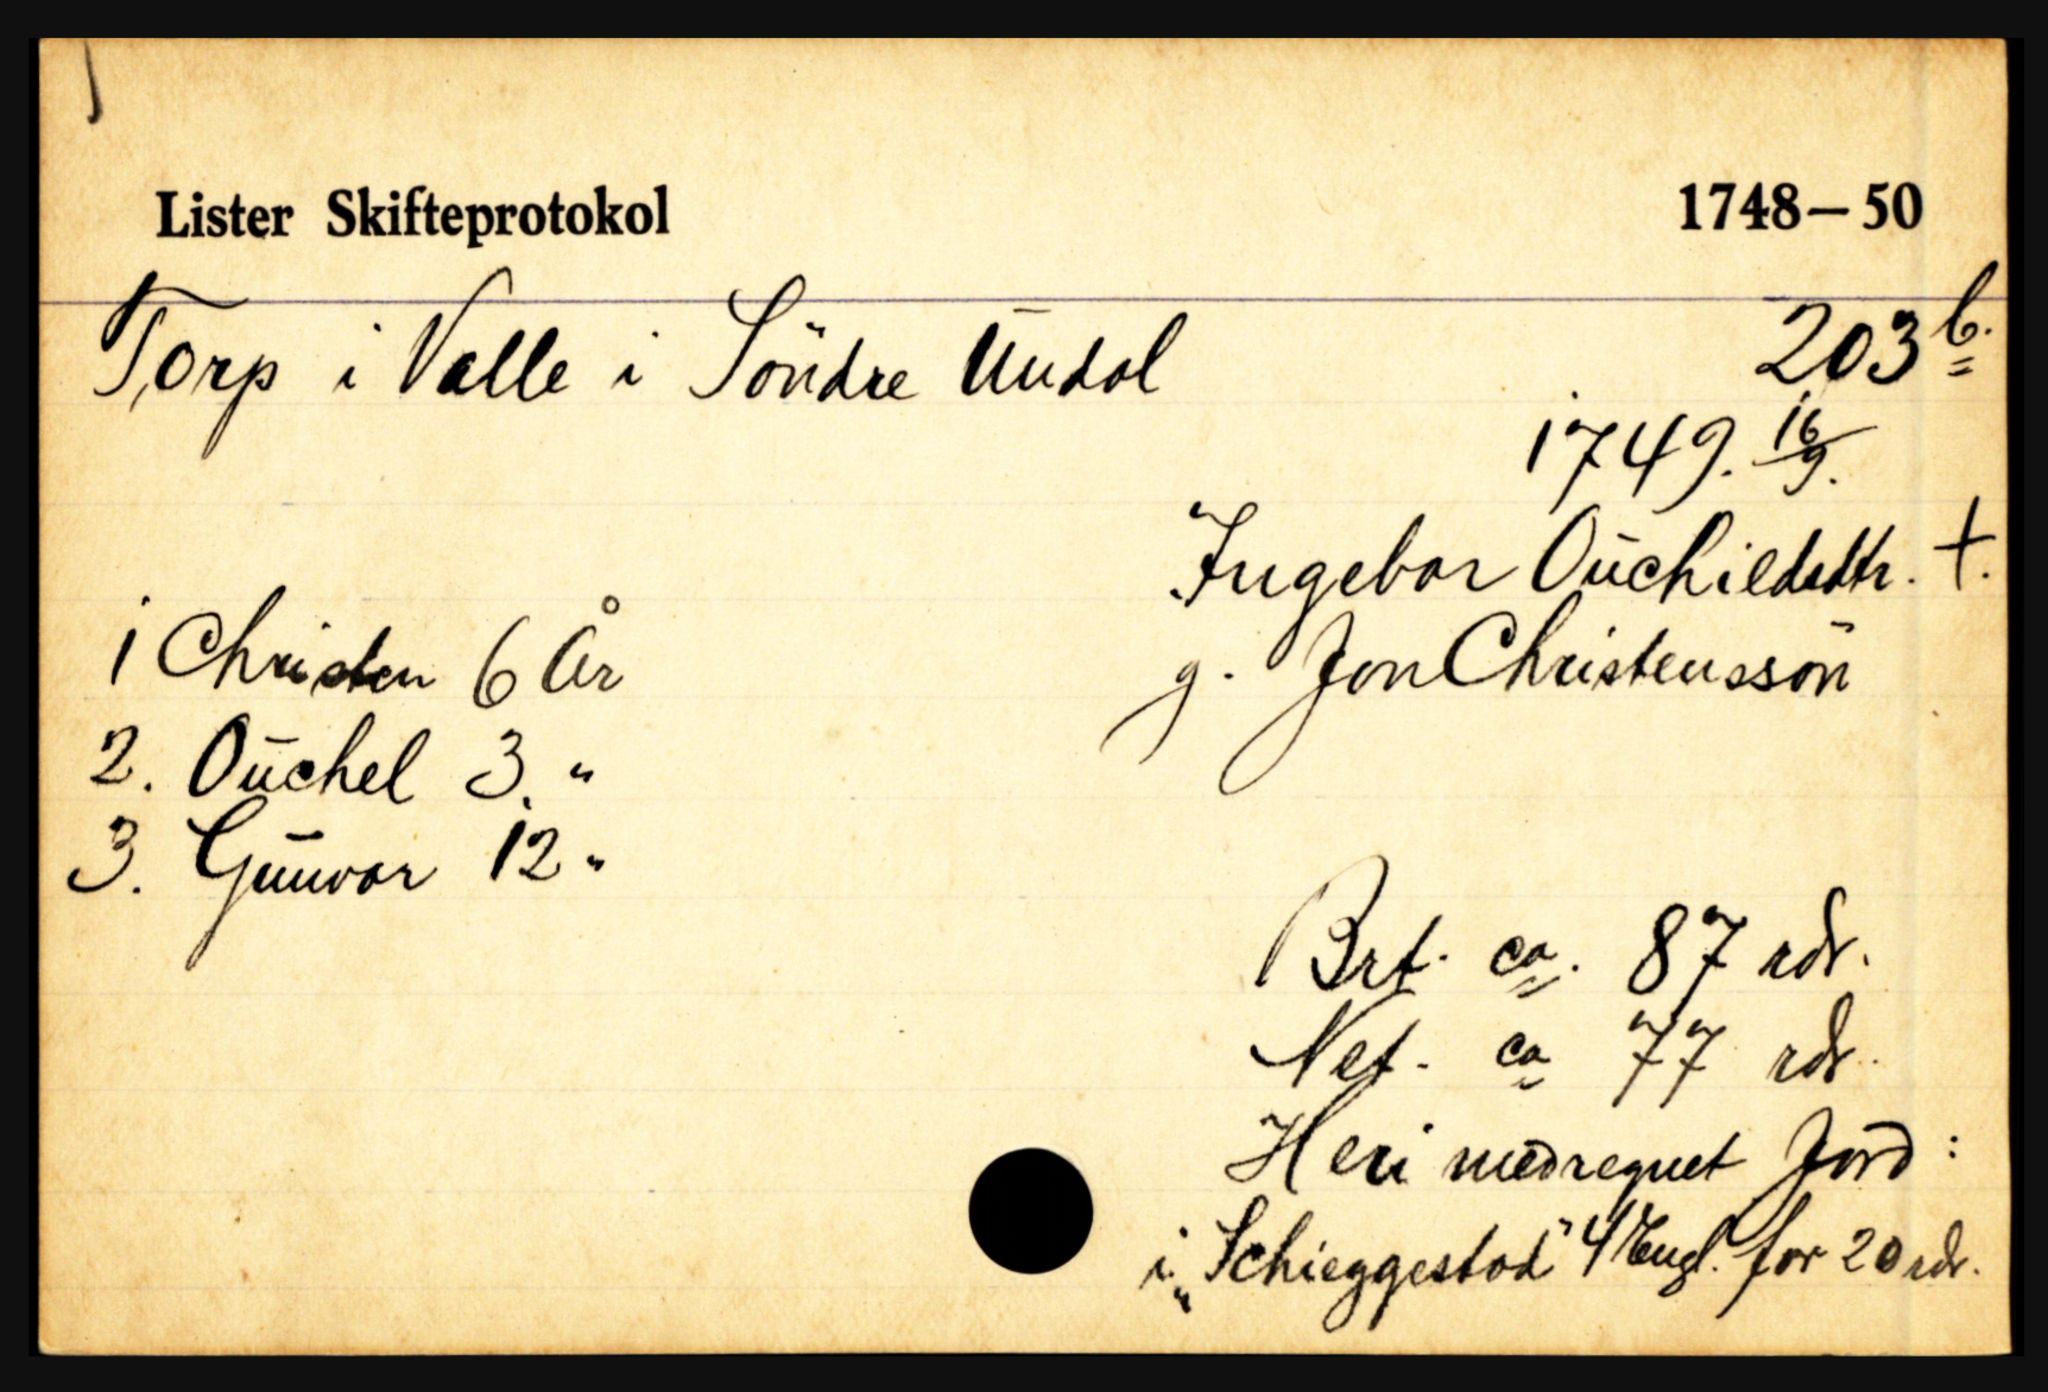 Lister Skifteprotokol 1748–50
Torp i Valle i Söndre Undal 203 b.
1749. 16/9.
Ingebor Ouchildsdtr. +.
g. Jon Christenssön
1 Christen 6 År
2. Ouchel 3. "
3. Gunvor 12 "
Brt. ca. 87 rdr.
Net. ca 77 rdr.
Heri medregnet Jord:
i "Schieggestad" 4 Engl. for 20 rdr.